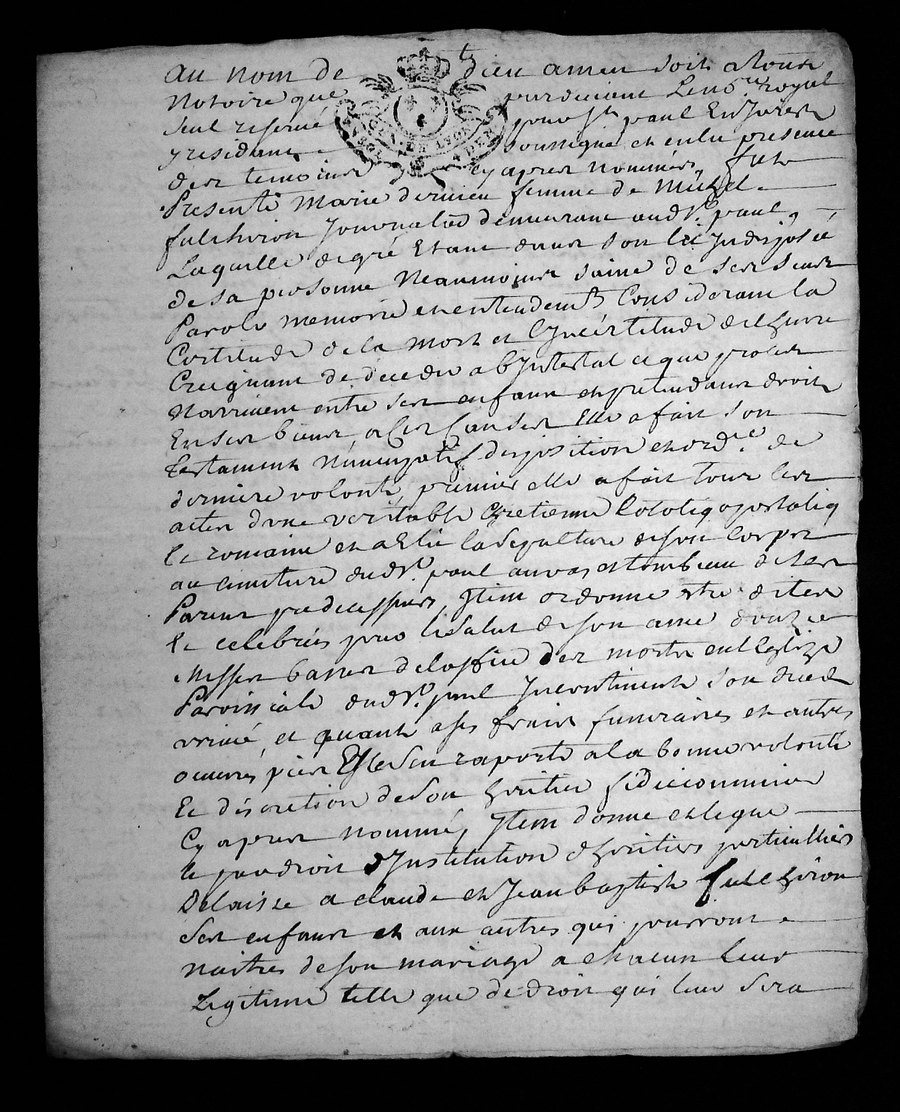 au nom de dieu amen soit a tous
notoire que pardevant Le no.re royal
seul reservé pour st paul En forest
y residant soussigné et en la presence
des temoins cy apres nommés, fut
Presente marie dernieu femme de michel
fulchiron Journalie demeurant aud. st. paul,
Laquelle de gré Etant dans son lit Indisposée
de sa personne Neanmoins saine de ses sens
Parole memoire et entendemt Considerant la
Certitude de la mort et l'Incertitude de l'heure
Creignant de deceder ab Intestat et que proces
Narrivent entre ses enfans et pretendans droits
En ses biens, a Ces Causes Elle a fait son
testament Nuncupatif disposition et ord.ce de
derniere volonté, premier elle a fait tous les
actes d'une veritable Chretienne Catoliq apostoliq
Et romaine et a Elu la sepulture de son Corps
au cimetiere dud. st. paul au vas et tombeau de ses
Parens predecesseurs, Item ordonne etre dites
Et celebrées pour le salut de son ame douze
Messes basses de l'office des morts en l'Eglize
Paroissiale dud. st. paul Incontinent son deced
arrivé, et quant a ses frais funeraires et autres
oeuvres pies Elle s'en raporte a la bonne volonté
Et discretion de son heritier fideicommis
Cy apres nommé, Item donne et legue
et par droit d'Institution d'heritiers particulliers
Delaisse a claude et Jean baptiste fulchiron
ses enfans et aux autres qui pourront
naitres de son mariage a chacun leur
Legitime telle que de droit qui leur sera